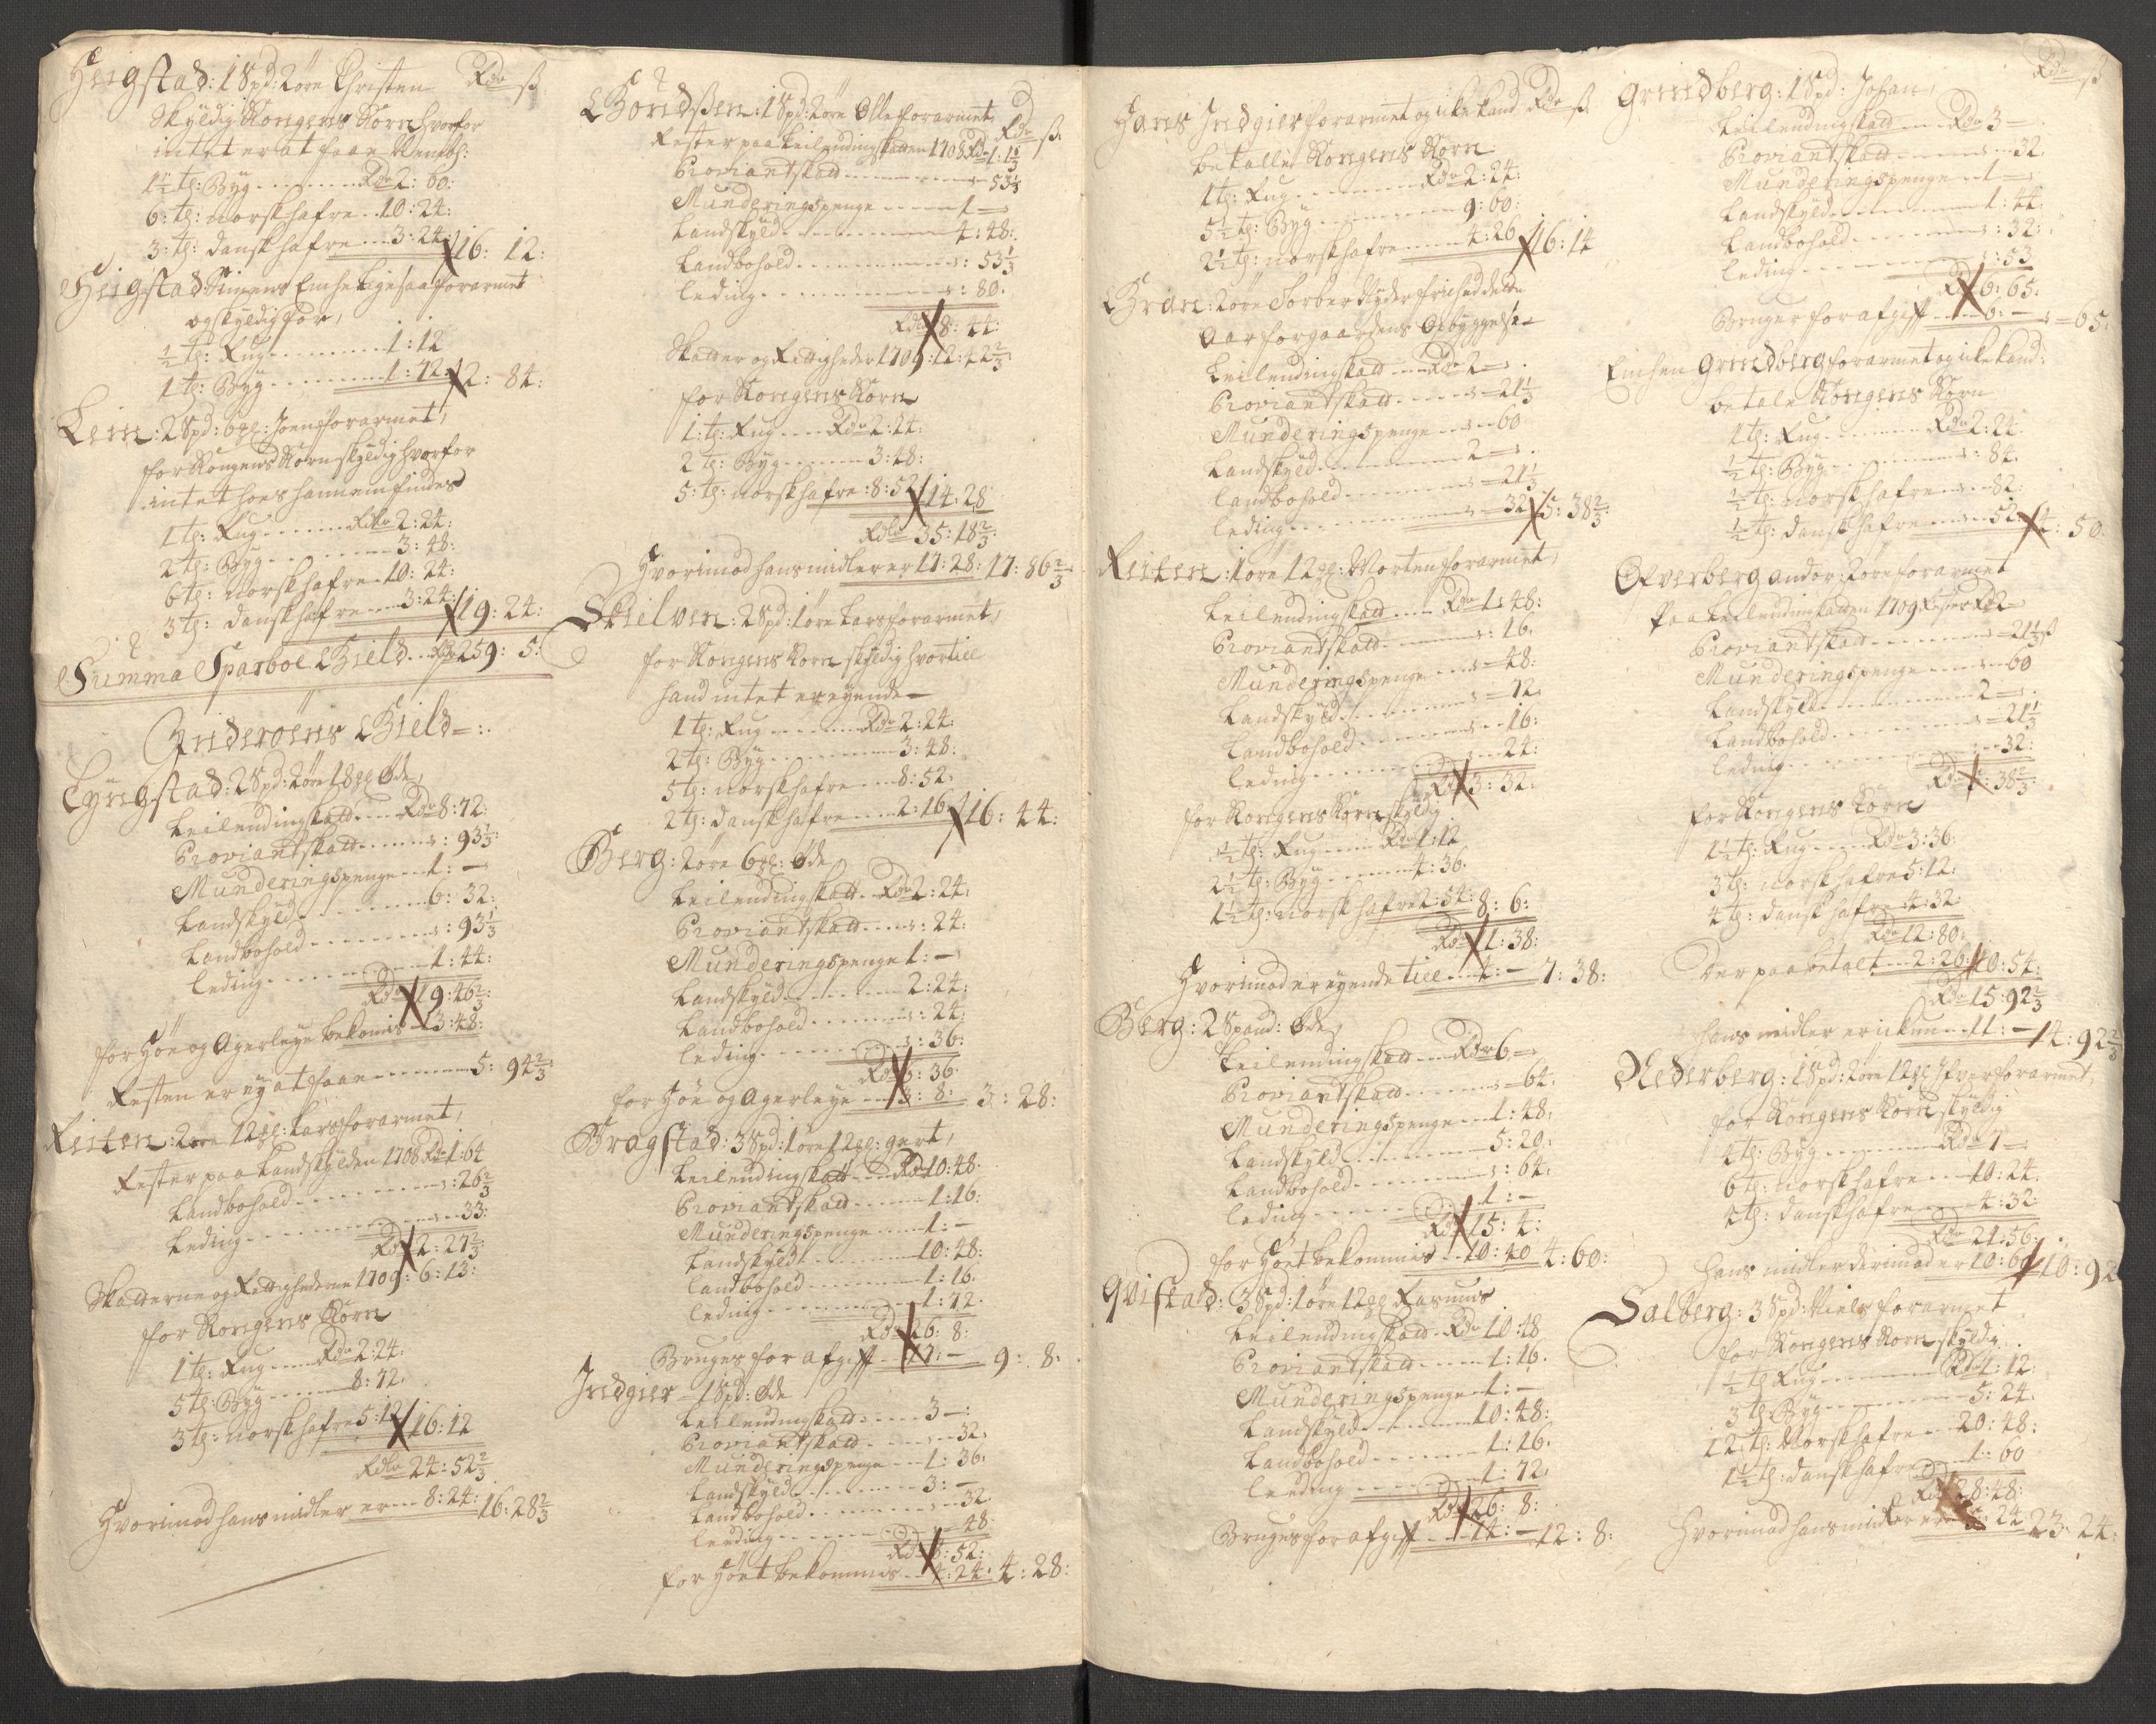 Heigstad: 1 Spd: 2 öre Christen Rdr ß
Skyldig Kongens Korn hvorfor
intet er at faae Rembs:
1½ tß: Byg Rdr 2: 60:
6: tß: norsk hafre 10: 24:
3: tß: dansk hafre 3: 24: 16: 12:
Heigstad Simens Enche ligesaa forarmet
og skyldig for,
½ tß: Rug 1: 12
1 tß: Byg 1: 72: 2: 84:
Lein: 2 Spd: 6 gl: Joen forarmet,
for Kongens Korn skyldig hvorfor
intet hoes hannem findes
1 tß: Rug Rdr 2: 24:
2 tß: Byg 3: 48:
6 tß: norsk hafre 10: 24:
3 tß: dansk hafre 3: 24: 19: 24:
Summa Sparboe Gield Rdr 259: 5:
Inderöens Gield
Lyngstad: 2 Spd: 2 öre 18 gl Öde,
Leilendingskatt Rdr 8: 72:
Proviantskatt : 93⅓:
Munderingspenge 1: —
Landskyld 6: 32:
Landbohold : 93⅓
leding 1: 44:
Rdr 19: 46⅔:
for Höe og Agerleye bekomis 13: 48:
Resten er ey at faae 5: 94⅔:
Reiten: 2 öre 12 gl: Lars forarmet,
Rester paa Landskylden 1708 Rdr 1: 64
Landbohold : 26⅔
Leding 33:
Rdr 2: 27⅔:
Skatterne og Rettighederne 1709: 6: 13:
for Kongens Korn
1 tß: Rug Rdr 2: 24:
5 tß: Byg 8: 72:
3 tß: norsk hafre 5: 12 16: 12
Rdlr 24: 52⅔
Hvorimod hans midler er 8: 24: 16: 28⅔
Gondßen: 1 Spd: 2 öre Olle forarmet, Rdr ß:
Rester paa Leilendingskatten 1708 Rdr 1: 1⅓
Proviantskatt 53⅓
Munderingspenge 1 —
Landskyld 4: 48:
Landbohold : 53⅓
leding : 80:
Rdr 8: 44:
Skatter og Rettigheder 1709: 12: 42⅔
for Kongens Korn
1: tß: Rug Rdr 2: 24:
2 tß: Byg 3: 48:
5: tß: norsk hafre: 8: 52 14: 28
Rdlr 35: 18⅔:
Hvorimod hans midler er 17: 28: 17: 86⅔
Skielven: 2 Spd: 1 öre Lars forarmet,
for Kongens Korn skyldig hvortill
hand intet er eyende —
1 tß: Rug Rdr 2: 24:
2 tß: Byg 3: 48:
5 tß: norsk hafre 8: 52:
2 tß: dansk hafre 2: 16: 16: 44:
Berg: 2 öre 6 gl: Öde
Leilendingskatt Rdr 2: 24:
Proviantskatt : 24:
Munderingspenge 1: —
Landskyld 2: 24:
Landbohold : 24:
leding : 36:
Rdr 6: 36:
for Höe og Agerleye 3: 8: 3: 28:
Bragstad: 3 Spd: 1 öre 12 gl: Gert,
Leilendingskatt Rdr 10: 48:
Proviantskatt 1: 16:
Munderingspenge 1: —
Landskyld 10: 48:
Landbohold 1: 16:
leding 1: 72:
Rdr 26: 8:
Bruges for afgift 17: — 9: 8:
Indgier 1 Spd: Öde
Leilendingskatt 3 —:
Proviantskatt 32:
Munderingspenge 1: 36:
Landskyld 3: —
Landbohold 32:
leeding 48:
Rdr 8: 52:
for Höet bekommis 4: 24: 4: 28:
Hans Indgier forarmet og icke kand Rdr ß
betalle Kongens Korn
1 tß: Rug Rdr 2: 24:
5½ tß: Byg 9: 60:
2½ tß: norsk hafre 4: 26 16: 14
Gran: 2 öre Torber Ryder frihed dette
Aar for gaardens Opbyggelse
Leilendingskatt Rdr 2 —
Proviantskatt 21⅓
Munderingspenge 60
Landskyld 2 —
landbohold 21⅓
leding 32 5: 38⅔:
Reiten: 1 öre 12 gl: Morten forarmet,
Leilendingskatt Rdr 1: 48:
Proviantskatt : 16:
Munderingspenge 48:
Landskyld 72:
Landbohold 16:
leding 24:
Rdr 3: 32:
for Kongens Korn skyldig
½ tß: Rug Rdr 1: 12
2½ tß: Byg 4: 36:
1½ tß: norsk hafre 2: 54: 8: 6:
Rdr 11: 38:
Hvorimod er eyende till 4: — 7: 38:
Berg: 2 Spand: Öde,
Leilendingskatt Rdr 6 —
Proviantskatt 64:
Munderingspenge 1: 48:
Landskyld 5: 20:
Landbohold : 64:
leding 1: —
Rdr 15: 4:
for Höet bekommis 10: 40 4: 60:
Qvistad: 3 Spd: 1 öre 12 gl Rasmus
Leilendingskatt Rdr 10: 48
Proviantskatt 1: 16:
Munderingspenge 1: —
Landskyld 10: 48:
Landbohold 1: 16:
leeding 1: 72:
Rdr 26: 8:
Bruges for afgift 14: — 12: 8:
Grindberg: 1 Spd: Johan, Rdr ß
Leilendingskatt Rdr 3 —
Proviantskatt 32
Munderingspenge 1 —
Landskyld 1: 44:
Landbohold : 32:
leding : 53
Rdr 6: 65:
Bruger for afgift 6: — 65:
Enchen Grindberg forarmet og icke kand:
betale Kongens Korn
1 tß: Rug Rdr 2: 24
½ tß: Byg : 84:
½ tß: norsk hafre 82:
½ tß: dansk hafre 52: 4: 50:
Öfverberg Andor: 2 öre forarmet
Paa Leilendingskatten 1709 Rester Rdr 2 —
Proviantskatt 21⅓ ß
Munderingspenge 60
Landskyld 2 —
Landbohold 21⅓
leding 32:
Rdr : 38⅔:
for Kongens Korn
1½ tß: Rug Rdr 3: 36:
3 tß: norsk hafre 5: 12:
4 tß: dansk hafre 4: 32:
Rdr 12: 80:
Der paa betalt 2: 26: 10: 54:
Rdr 15: 92⅔
hans midler er ickun 11: — 14: 92⅔
Nederberg: 1 Spd: 2 öre 12 gl Ifver forarmet,
for Kongens Korn skyldig
4 tß: Byg Rdr 7 —
6 tß: norsk hafre 10: 24:
4 tß: dansk hafre 4: 32:
Rdr 21: 56:
hans midler derimod er 10: 60 10: 92
Salberg: 3 Spd: Niels forarmet
for Kongens Korn skyldig
½ tß Rug Rdr 1: 12:
3 tß Byg 5: 24:
12 tß: Norsk hafre 20: 48:
1½ tß: dansk hafre 1: 60
Rdr 28: 48:
Hvorimod hans midler er 5: 24 23: 24: